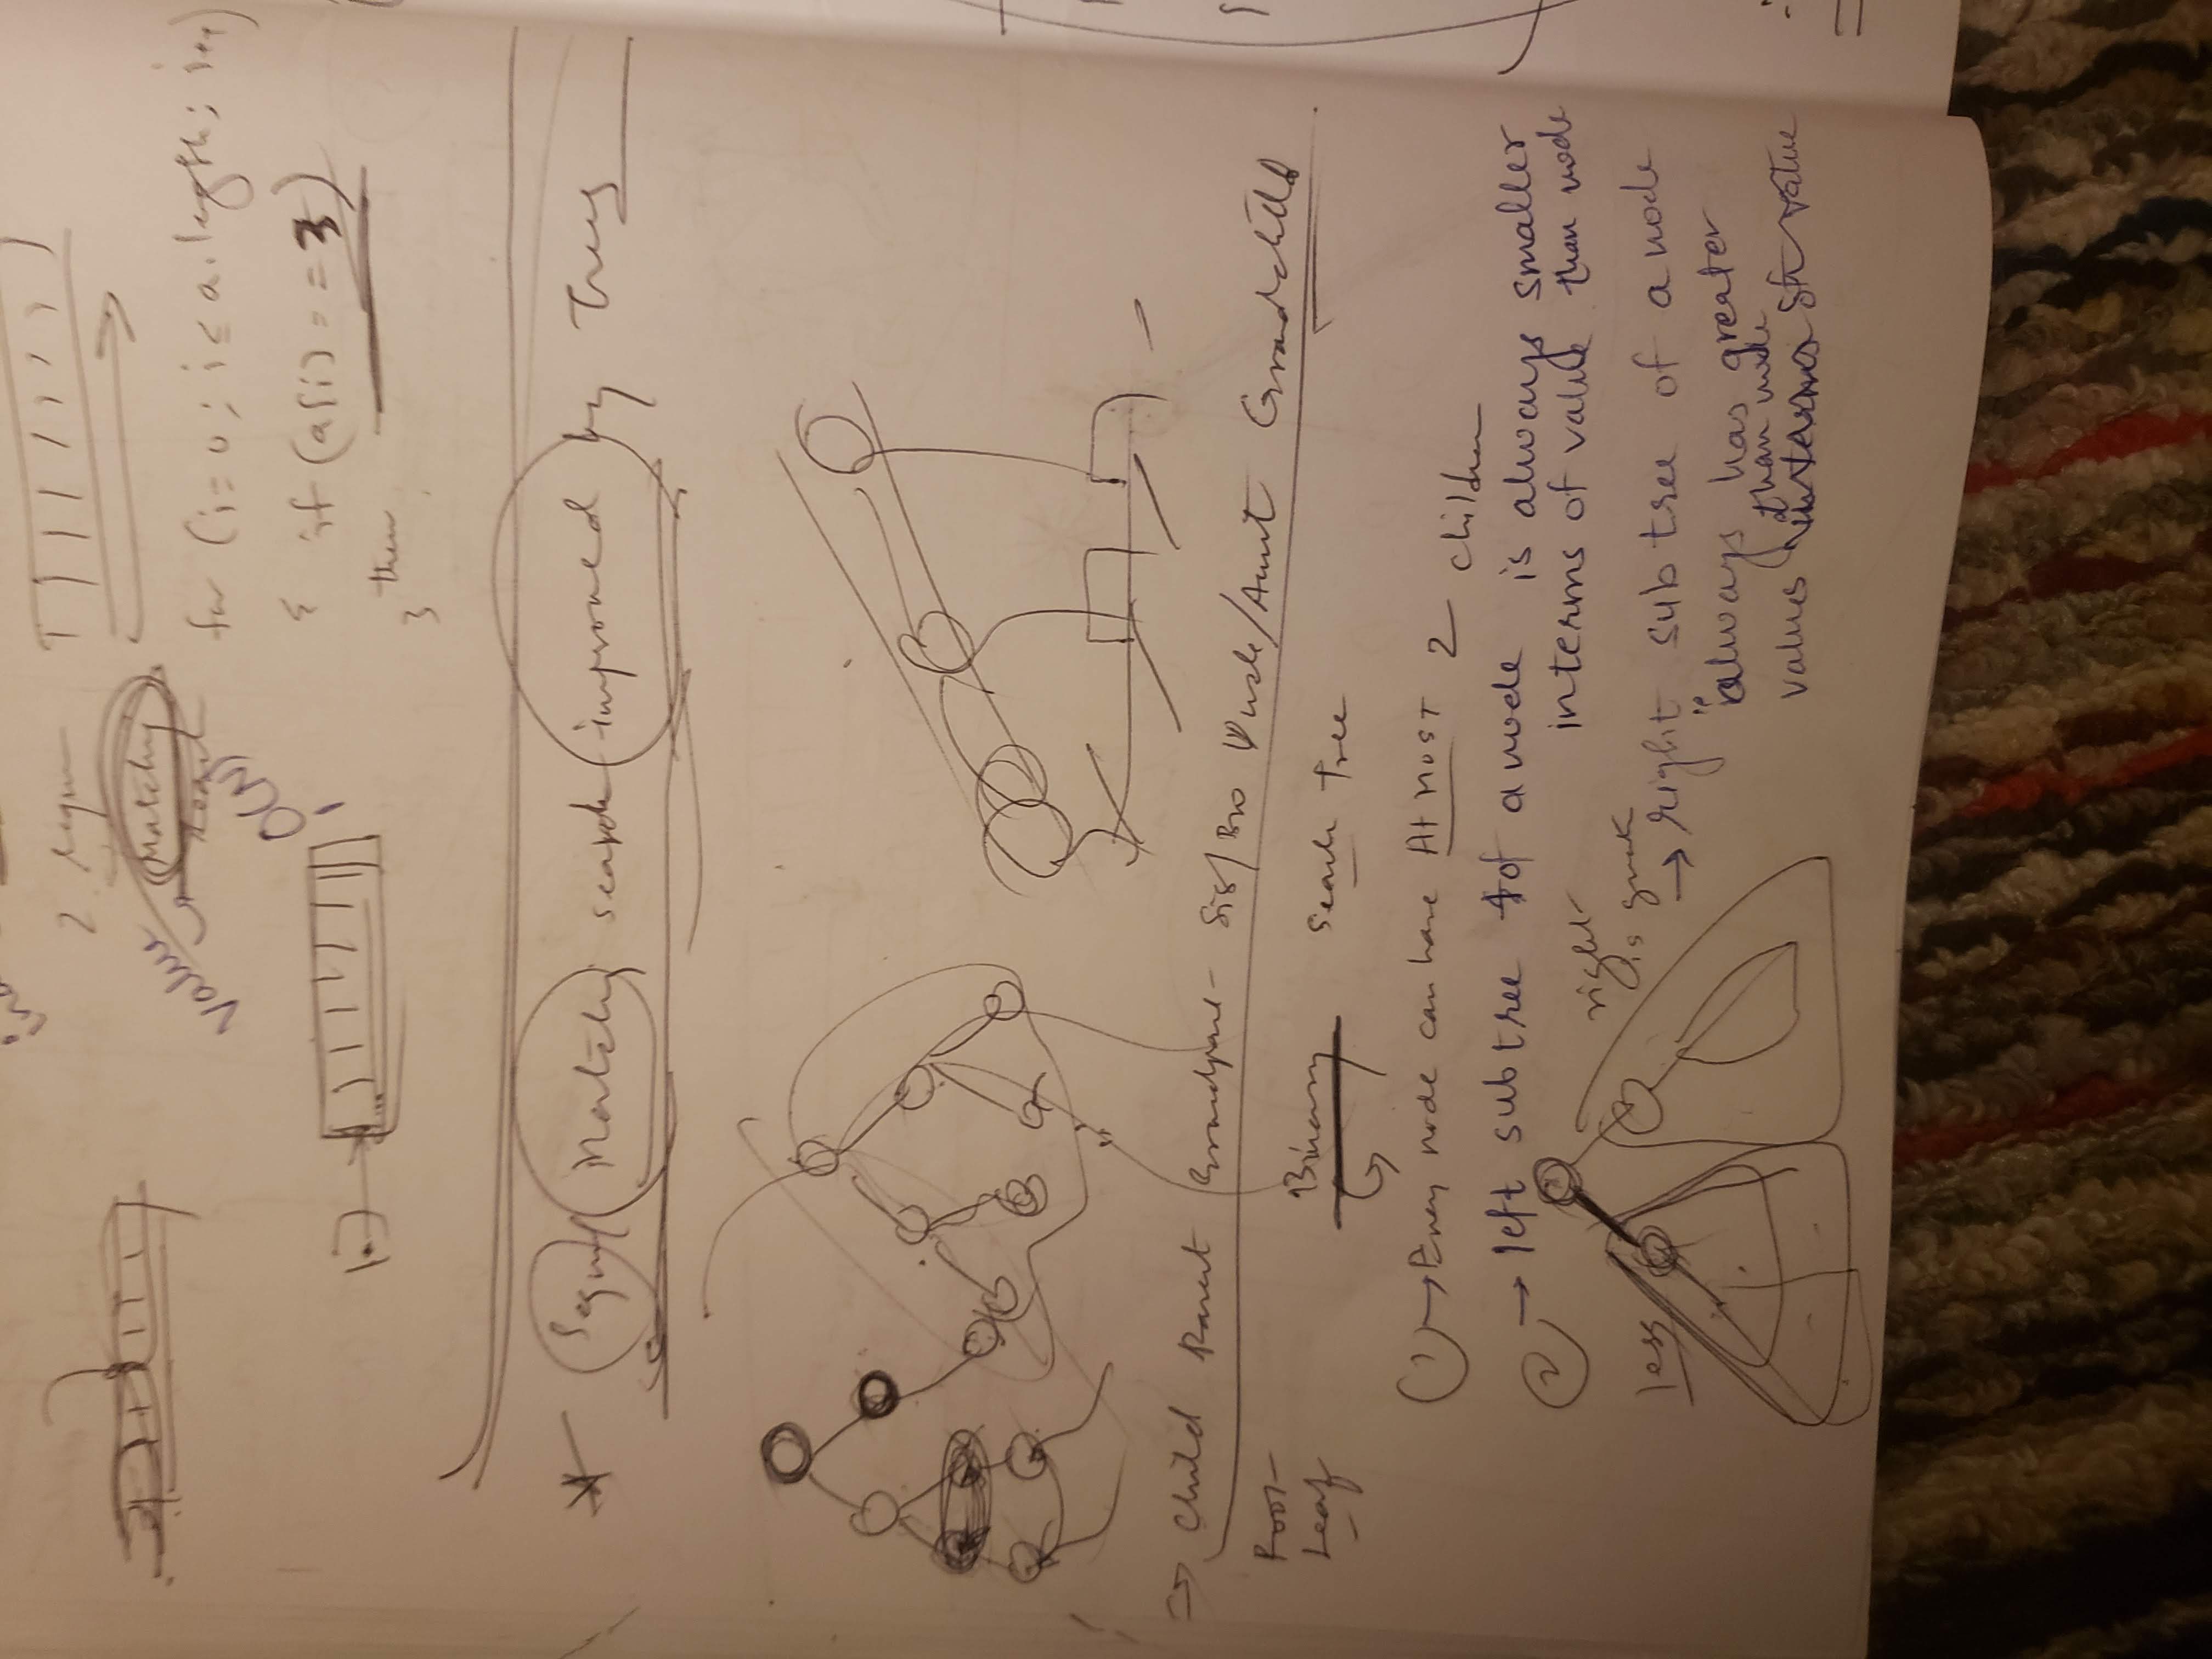 2.
Matching
value
O(N)
for (i=0; i≤a.length; i++)
{ if (a[i] == 3)
then
}
Matching search improved by Trees
⇒ Child Parent Grandpare- Sis/Bro Uncle/Aunt Grandchild
Root
Leaf
Binary Search Tree
1 → Every node can have AT MOST 2 children
2 → left subtree of a node is always smaller
interms of value than node
right
is
less
→ right subtree of a node
always has greater
than node
values interms of value